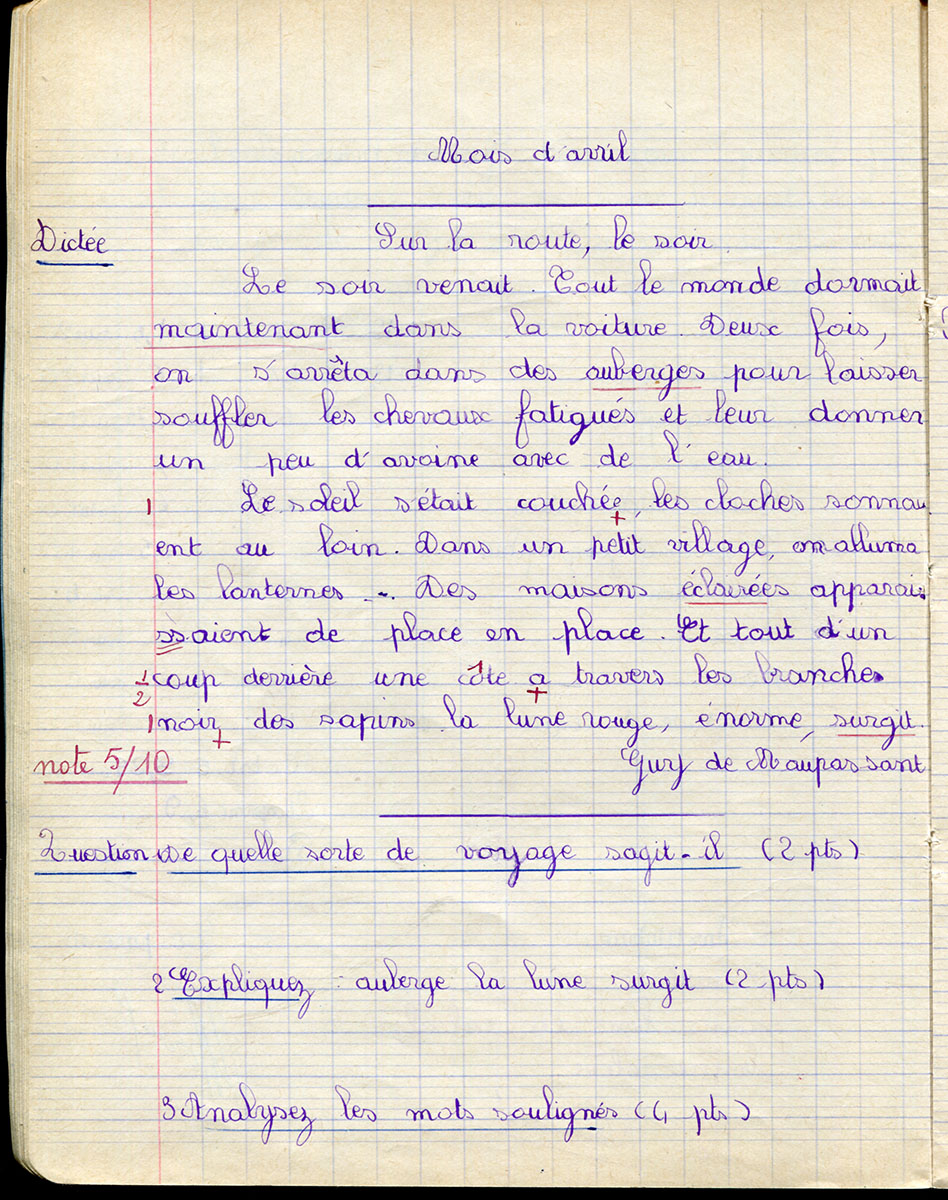 Mois d'avril
Dictée Sur la route, le soir.
Le soir venait. Tout le monde dormait
maintenant dans la voiture. Deux fois,
on s'arrêta dans des auberges pour laisser
souffler les chevaux fatigués et leur donner
un peu d'avoine avec de l'eau.
1 Le soleil s'était couchée, les cloches sonnai
ent au loin. Dans un petit village, on alluma
les lanternes... Des maisons éclairées apparai
ssaient de place en place. Et tout d'un
1/2 coup derrière une côte a travers les branches
1 noir des sapins la lune rouge, énorme, surgit.
note 5/10 Guy de Maupassant
Question 1 De quelle sorte de voyage sagit-il (2 pts)
2 Expliquez : auberge la lune surgit (2 pts)
3 Analysez les mots soulignés (4 pts)